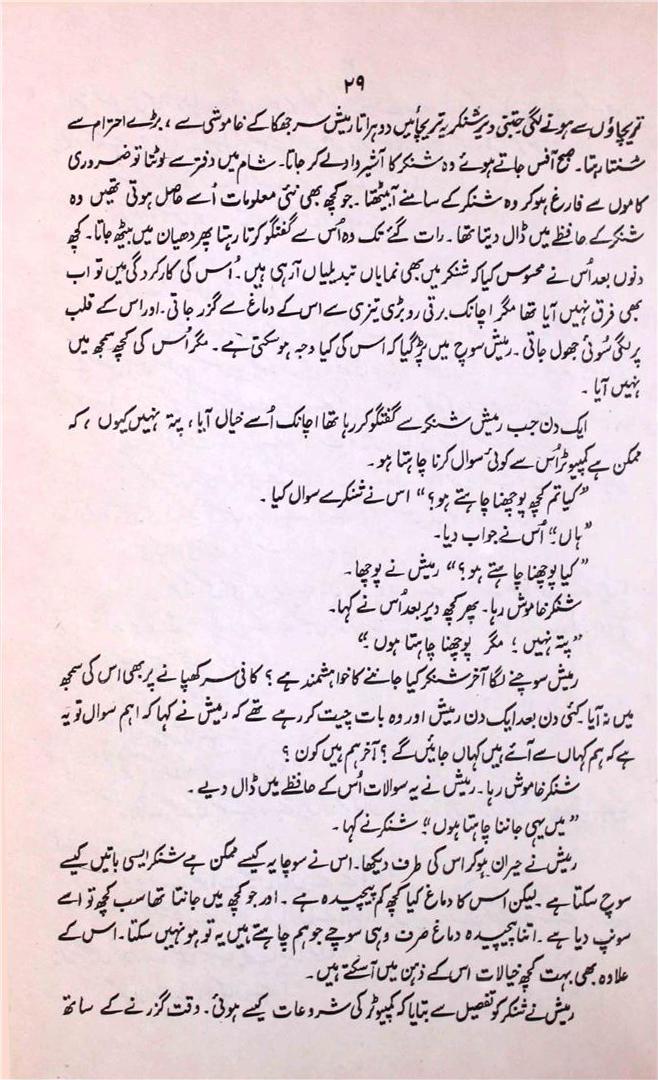 ۲۹
تو یچاؤں سے ہونے لگی جتنی دیر شنکر یہ تریچائیں دوہراتا رمیش سر جھکا کے خاموشی سے ، بڑے احترام سے
سُنتا رہتا۔ صبح آفس جاتے ہوئے وہ شنکر کا آشیرواد لے کر جاتا۔ شام میں دفتر سے لوٹتا تو ضروری
کاموں سے فارغ ہو کر وہ شنکر کے سامنے آ بیٹھتا۔ جو کچھ بھی نئی معلومات اُسے حاصل ہوتی تھیں وہ
شنکر کے حافظے میں ڈال دیتا تھا۔ رات گئے تک وہ اُس سے گفتگو کرتا رہتا پھر دھیان میں بیٹھ جاتا۔ کچھ
دنوں بعد اُس نے محسوس کیا کہ شنکر میں بھی نمایاں تبدیلیاں آ رہی ہیں۔ اُس کی کارکردگی میں تو اب
بھی فرق نہیں آیا تھا مگر اچانک برقی رو بڑی تیزی سے اس کے دماغ سے گزر جاتی۔ اور اس کے قلب
پر لگی سُوئی جھول جاتی۔ رمیش سوچ میں پڑ گیا کہ اس کی کیا وجہ ہو سکتی ہے۔ مگر اُس کی کچھ سمجھ میں
نہیں آیا۔
ایک دن جب رمیش شنکر سے گفتگو کر رہا تھا اچانک اُسے خیال آیا، پتہ نہیں کیوں ، کہ
ممکن ہے کمپیوٹر اُس سے کوئی سوال کرنا چاہتا ہو۔
”کیا تم کچھ پوچھنا چاہتے ہو؟“ اس نے شنکر سے سوال کیا۔
”ہاں“ اُس نے جواب دیا۔
”کیا پوچھنا چاہتے ہو؟“ رمیش نے پوچھا۔
شنکر خاموش رہا۔ پھر کچھ دیر بعد اُس نے کہا۔
”پتہ نہیں ؛ مگر پوچھنا چاہتا ہوں۔“
رمیش سوچنے لگا آخر شنکر کیا جاننے کا خواہشمند ہے ؟ کافی سر کھپانے پر بھی اس کی سمجھ
میں نہ آیا۔ کئی دن بعد ایک دن رمیش اور وہ بات چیت کر رہے تھے کہ رمیش نے کہا کہ اہم سوال تو یہ
ہے کہ ہم کہاں سے آئے ہیں کہاں جائیں گے ؟ آخر ہم ہیں کون ؟
شنکر خاموش رہا۔ رمیش نے یہ سوالات اُس کے حافظے میں ڈال دیے۔
”میں یہی جاننا چاہتا ہوں“ شنکر نے کہا۔
رمیش نے حیران ہو کر اس کی طرف دیکھا۔ اس نے سوچا یہ کیسے ممکن ہے شنکر ایسی باتیں کیسے
سوچ سکتا ہے۔ لیکن اس کا دماغ کیا کچھ کم پیچیدہ ہے۔ اور جو کچھ میں جانتا تھا سب کچھ تو اسے
سونپ دیا ہے۔ اتنا پیچیدہ دماغ صرف وہی سوچے جو ہم چاہتے ہیں یہ تو ہو نہیں سکتا۔ اس کے
علاوہ بھی بہت کچھ خیالات اس کے ذہن میں آ سکتے ہیں۔
رمیش نے شنکر کو تفصیل سے بتایا کہ کمپیوٹر کی شروعات کیسے ہوئی۔ وقت گزرنے کے ساتھ